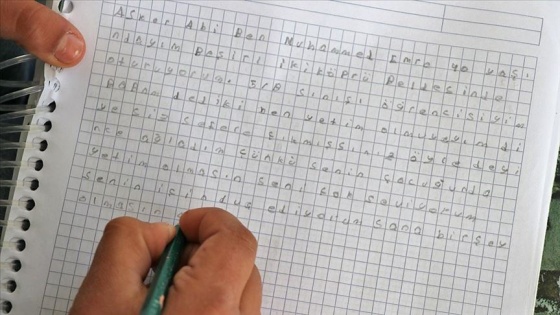 Asker Abi Ben Muhammed Emre 10 yaşı
ndayım Beşiri ikiköprü Beldesinde
oturuyorum. 3/A sınıfı öğrencisiyim
dediki ben yetim olmayayım di
ye siz sefere çıkmışsınız öyle deyi
nce ağladım çünkü senin çocuğunda
yetim olmasın seni çok seviyorum
senin için dua ediyorum sana birşey
olmasın